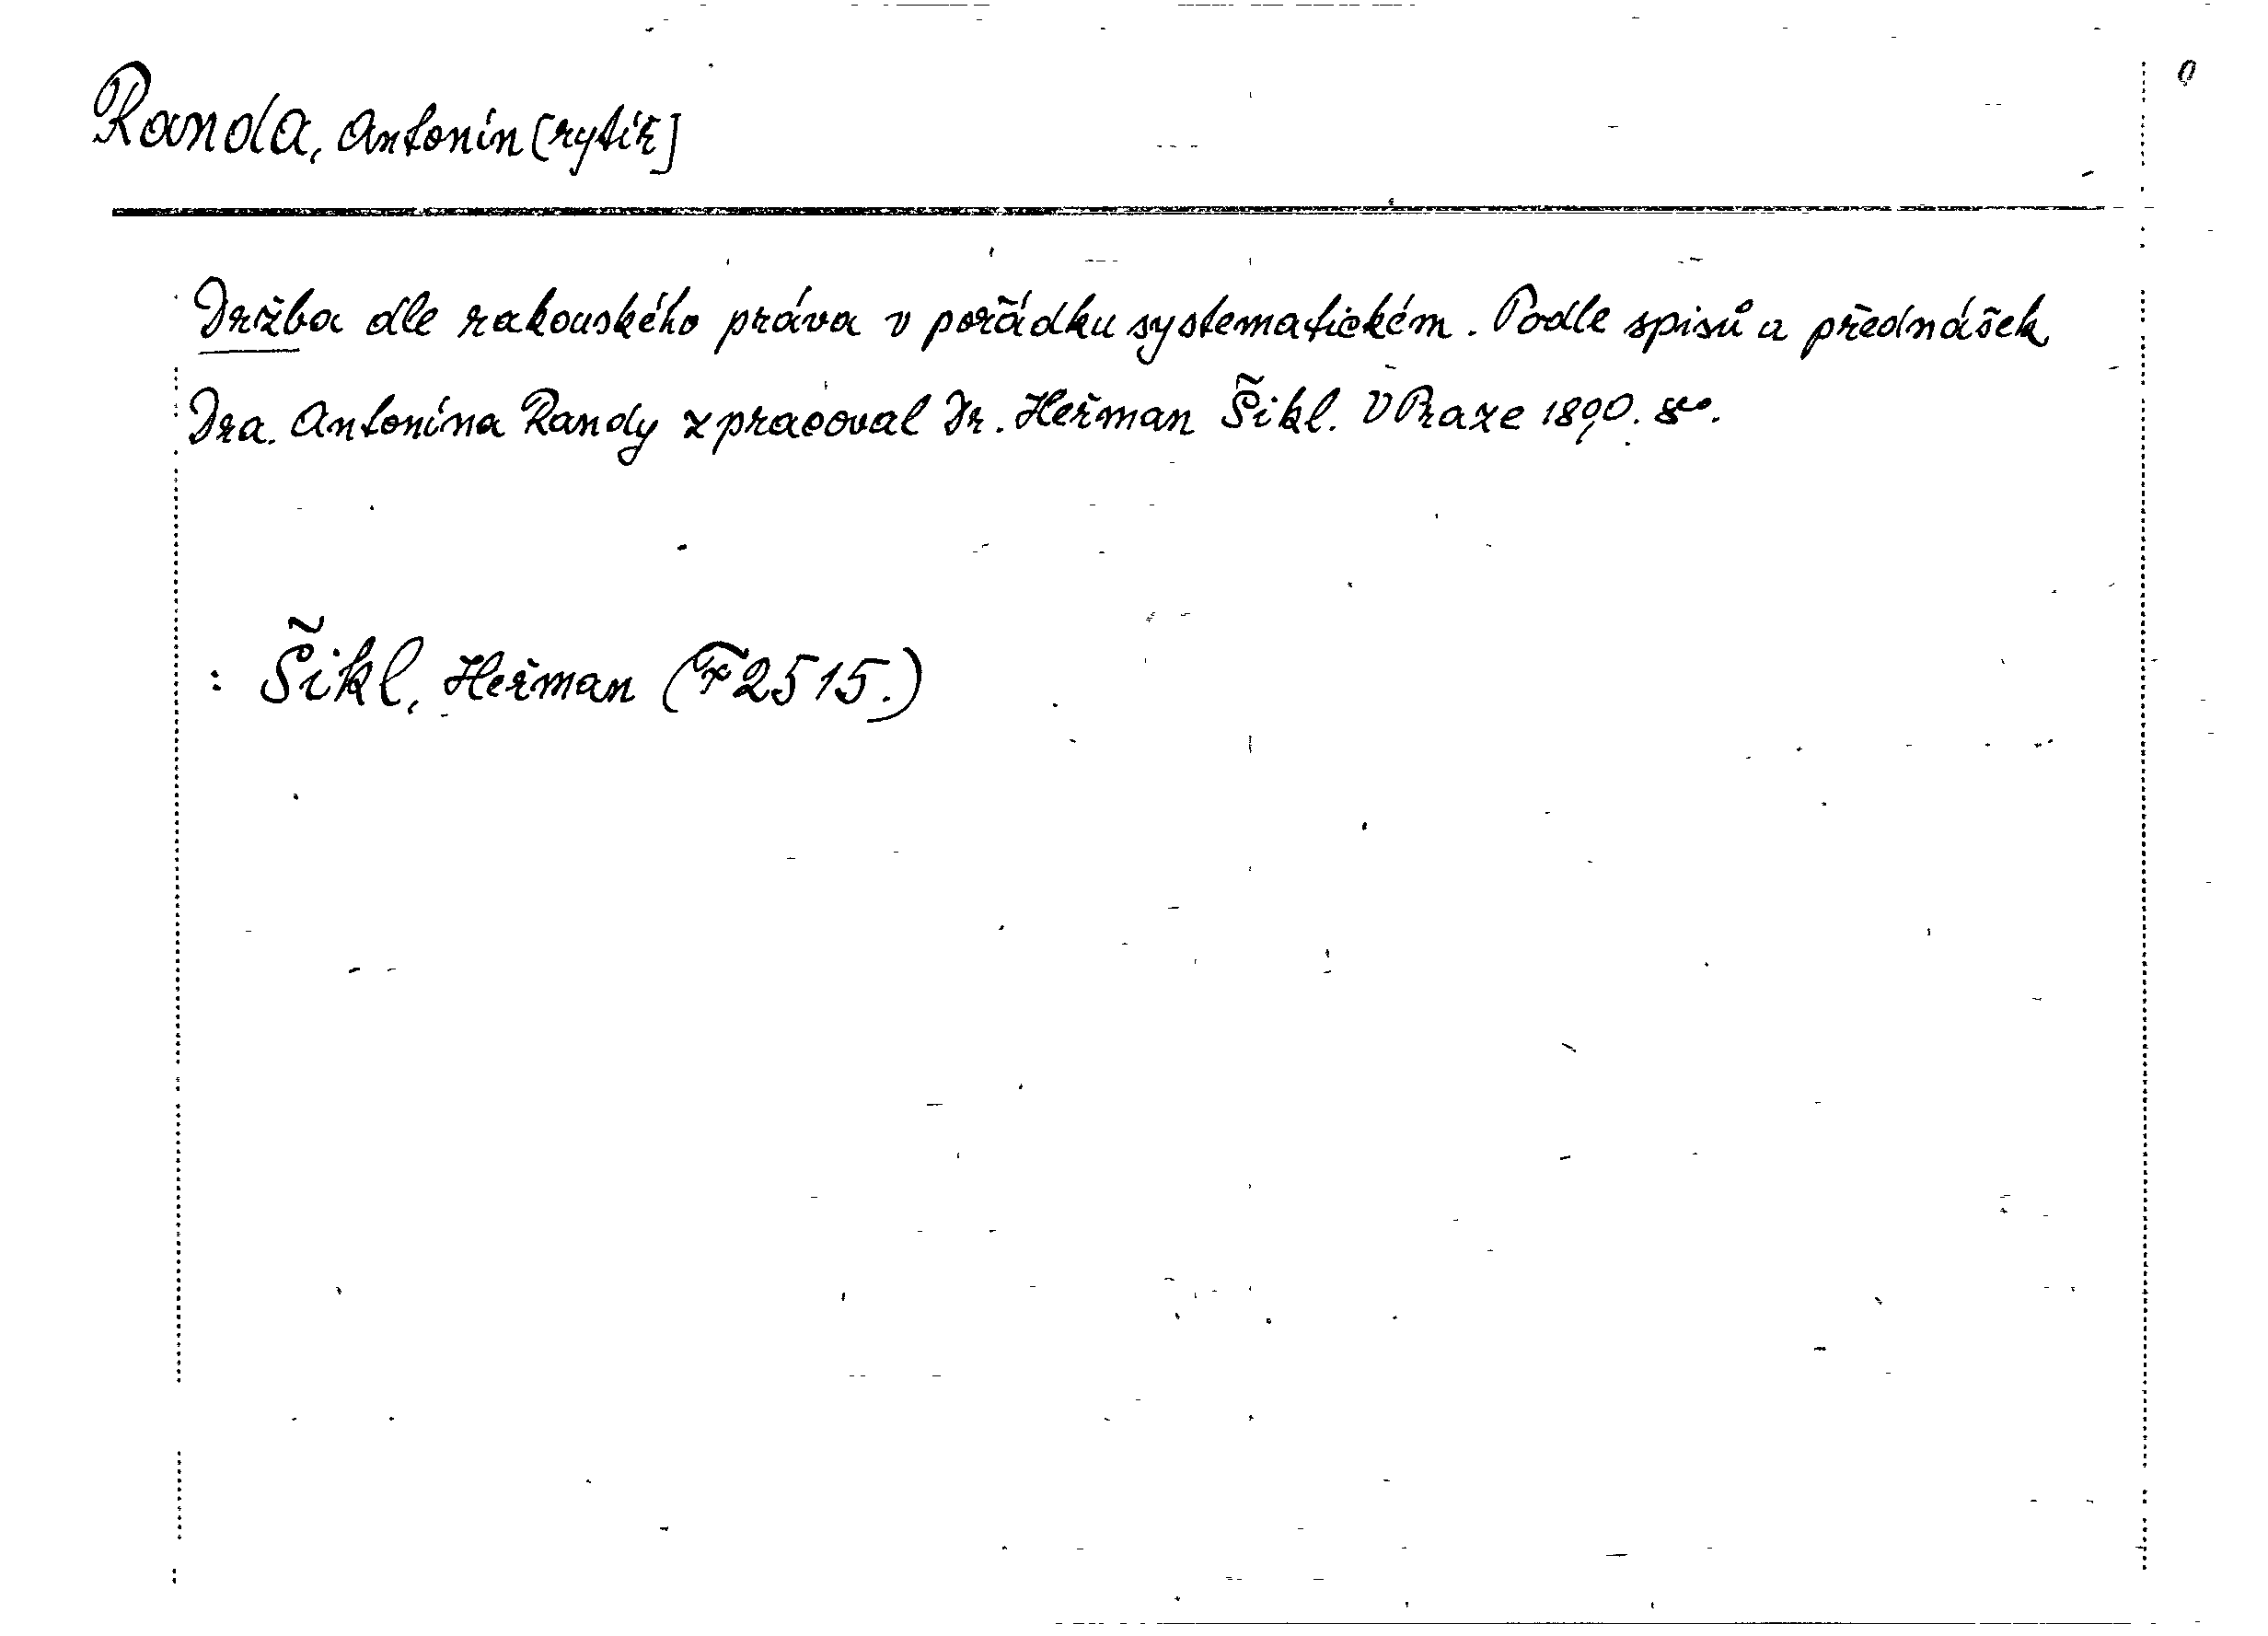 Randa, Antonín [rytíř]
Držba dle rakouského práva v pořádku systematickém. Podle spisů a přednášek
Dra. Antonína Randy zpracoval Dr. Heřman Šikl. V Praze 1890. 8°.
: Šikl, Heřman (F 2515.)